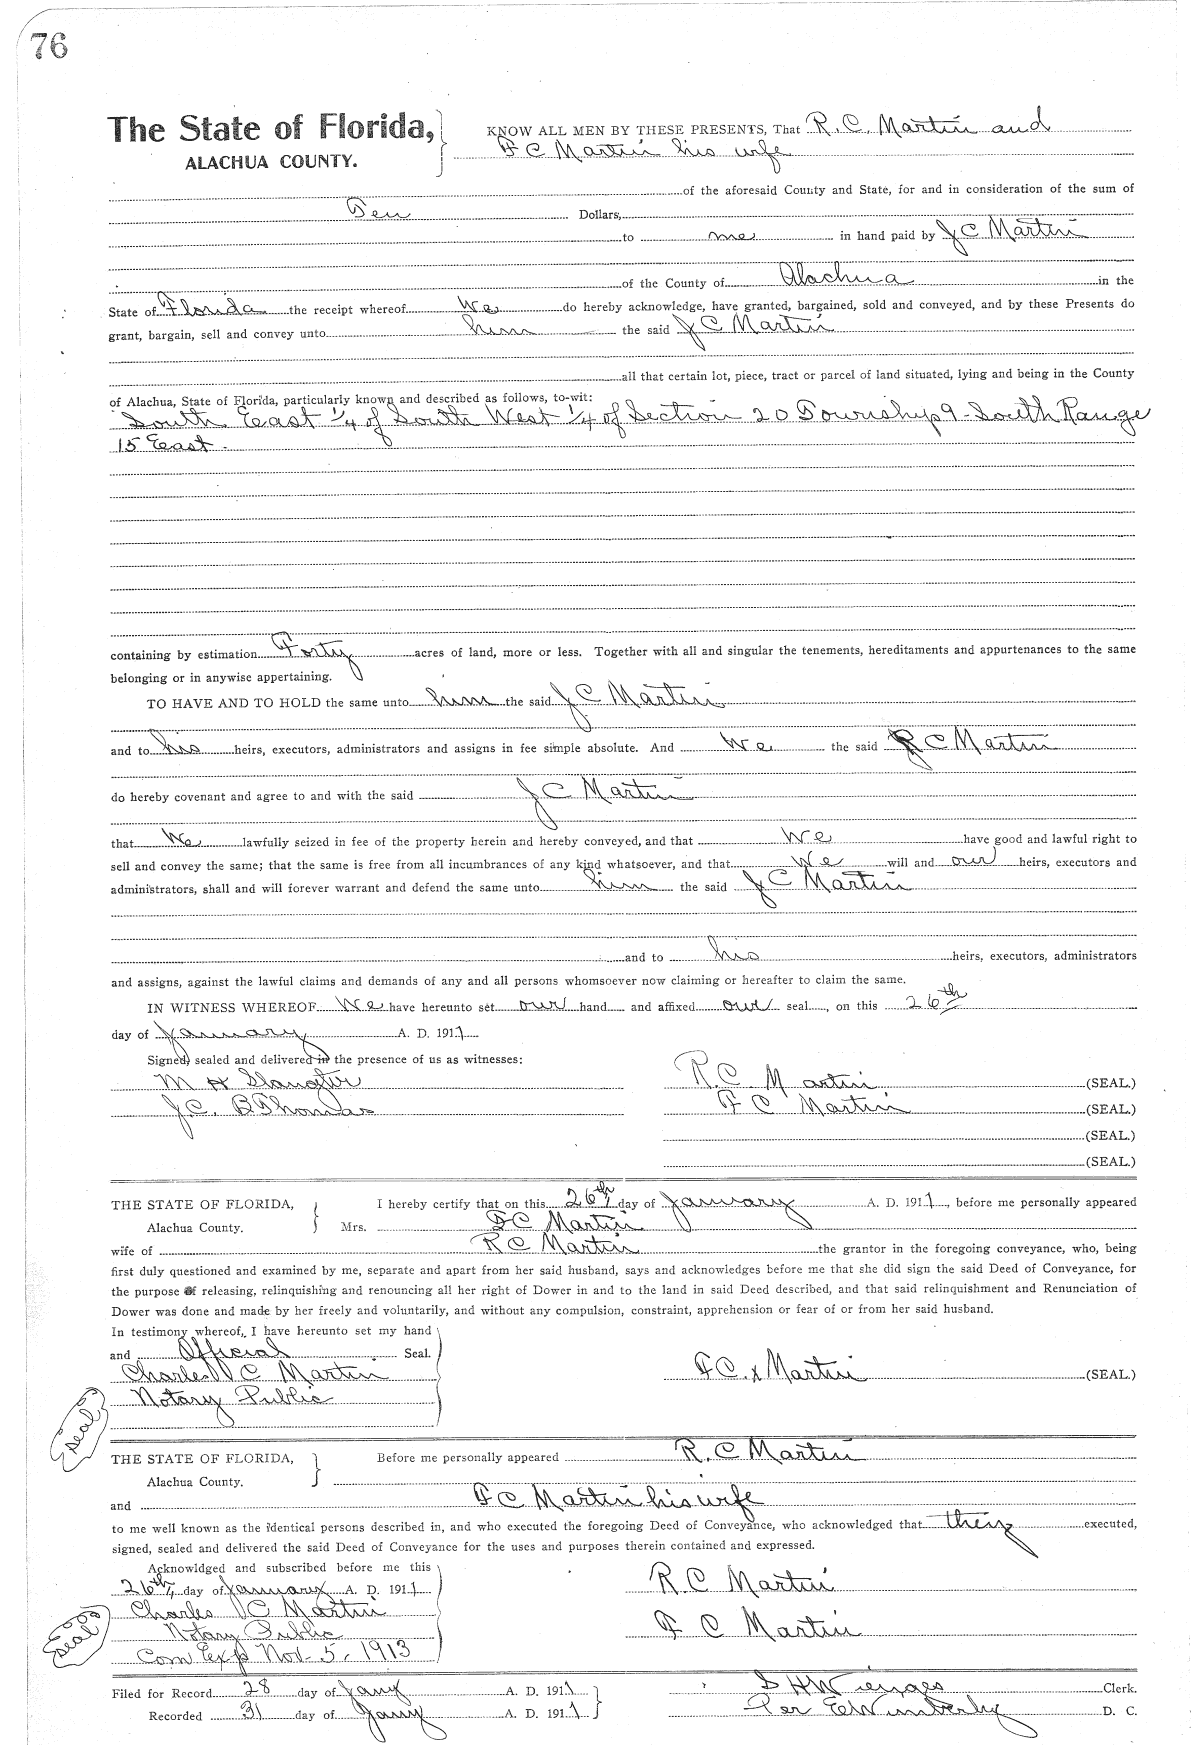 76
The State of Florida, KNOW ALL MEN BY THESE PRESENTS, That R. C. Martin and
ALACHUA COUNTY. F C Martin his wife
of the aforesaid County and State, for and in consideration of the sum of
Ten Dollars,
to me in hand paid by J C Martin
of the County of Alachua in the
State of Florida the receipt whereof We do hereby acknowledge, have granted, bargained, sold and conveyed, and by these Presents do
grant, bargain, sell and convey unto him the said J C Martin
all that certain lot, piece, tract or parcel of land situated, lying and being in the County
of Alachua, State of Florida, particularly known and described as follows, to-wit:
South East 1/4 of South West 1/4 of Section 20 Township 9 - South Range
15 East.
containing by estimation Forty acres of land, more or less. Together with all and singular the tenements, hereditaments and appurtenances to the same
belonging or in anywise appertaining.
TO HAVE AND TO HOLD the same unto him the said J C Martin
and to his heirs, executors, administrators and assigns in fee simple absolute. And We the said R C Martin
do hereby covenant and agree to and with the said J C Martin
that We lawfully seized in fee of the property herein and hereby conveyed, and that We have good and lawful right to
sell and convey the same; that the same is free from all incumbrances of any kind whatsoever, and that We will and our heirs, executors and
administrators, shall and will forever warrant and defend the same unto him the said J C Martin
and to his heirs, executors, administrators
and assigns, against the lawful claims and demands of any and all persons whomsoever now claiming or hereafter to claim the same.
IN WITNESS WHEREOF We have hereunto set our hand and affixed our seal, on this 26th
day of January A. D. 1911.
Signed, sealed and delivered in the presence of us as witnesses:
M H Slaughter R. C. Martin (SEAL.)
J. C. B Thomas F C Martin (SEAL.)
(SEAL.)
(SEAL.)
THE STATE OF FLORIDA, I hereby certify that on this 26th day of January A. D. 1911, before me personally appeared
Alachua County. Mrs. F C Martin
wife of R C Martin the grantor in the foregoing conveyance, who, being
first duly questioned and examined by me, separate and apart from her said husband, says and acknowledges before me that she did sign the said Deed of Conveyance, for
the purpose of releasing, relinquishing and renouncing all her right of Dower in and to the land in said Deed described, and that said relinquishment and Renunciation of
Dower was done and made by her freely and voluntarily, and without any compulsion, constraint, apprehension or fear of or from her said husband.
In testimony whereof, I have hereunto set my hand
and Official Seal.
Charles C Martin F C. x Martin (SEAL.)
Notary Public
Seal
THE STATE OF FLORIDA, Before me personally appeared R. C Martin
Alachua County.
and F C Martin his wife
to me well known as the identical persons described in, and who executed the foregoing Deed of Conveyance, who acknowledged that they executed,
signed, sealed and delivered the said Deed of Conveyance for the uses and purposes therein contained and expressed.
Acknowldged and subscribed before me this
26th day of January A. D. 1911 R C Martin
Charles C Martin
Notary Public F C Martin
Seal
Com Exp Nov. 5, 1913
Filed for Record 28 day of Jany A. D. 1911 S H Wienges Clerk.
Recorded 31 day of Jany A. D. 1911 Per E Wimberly D. C.